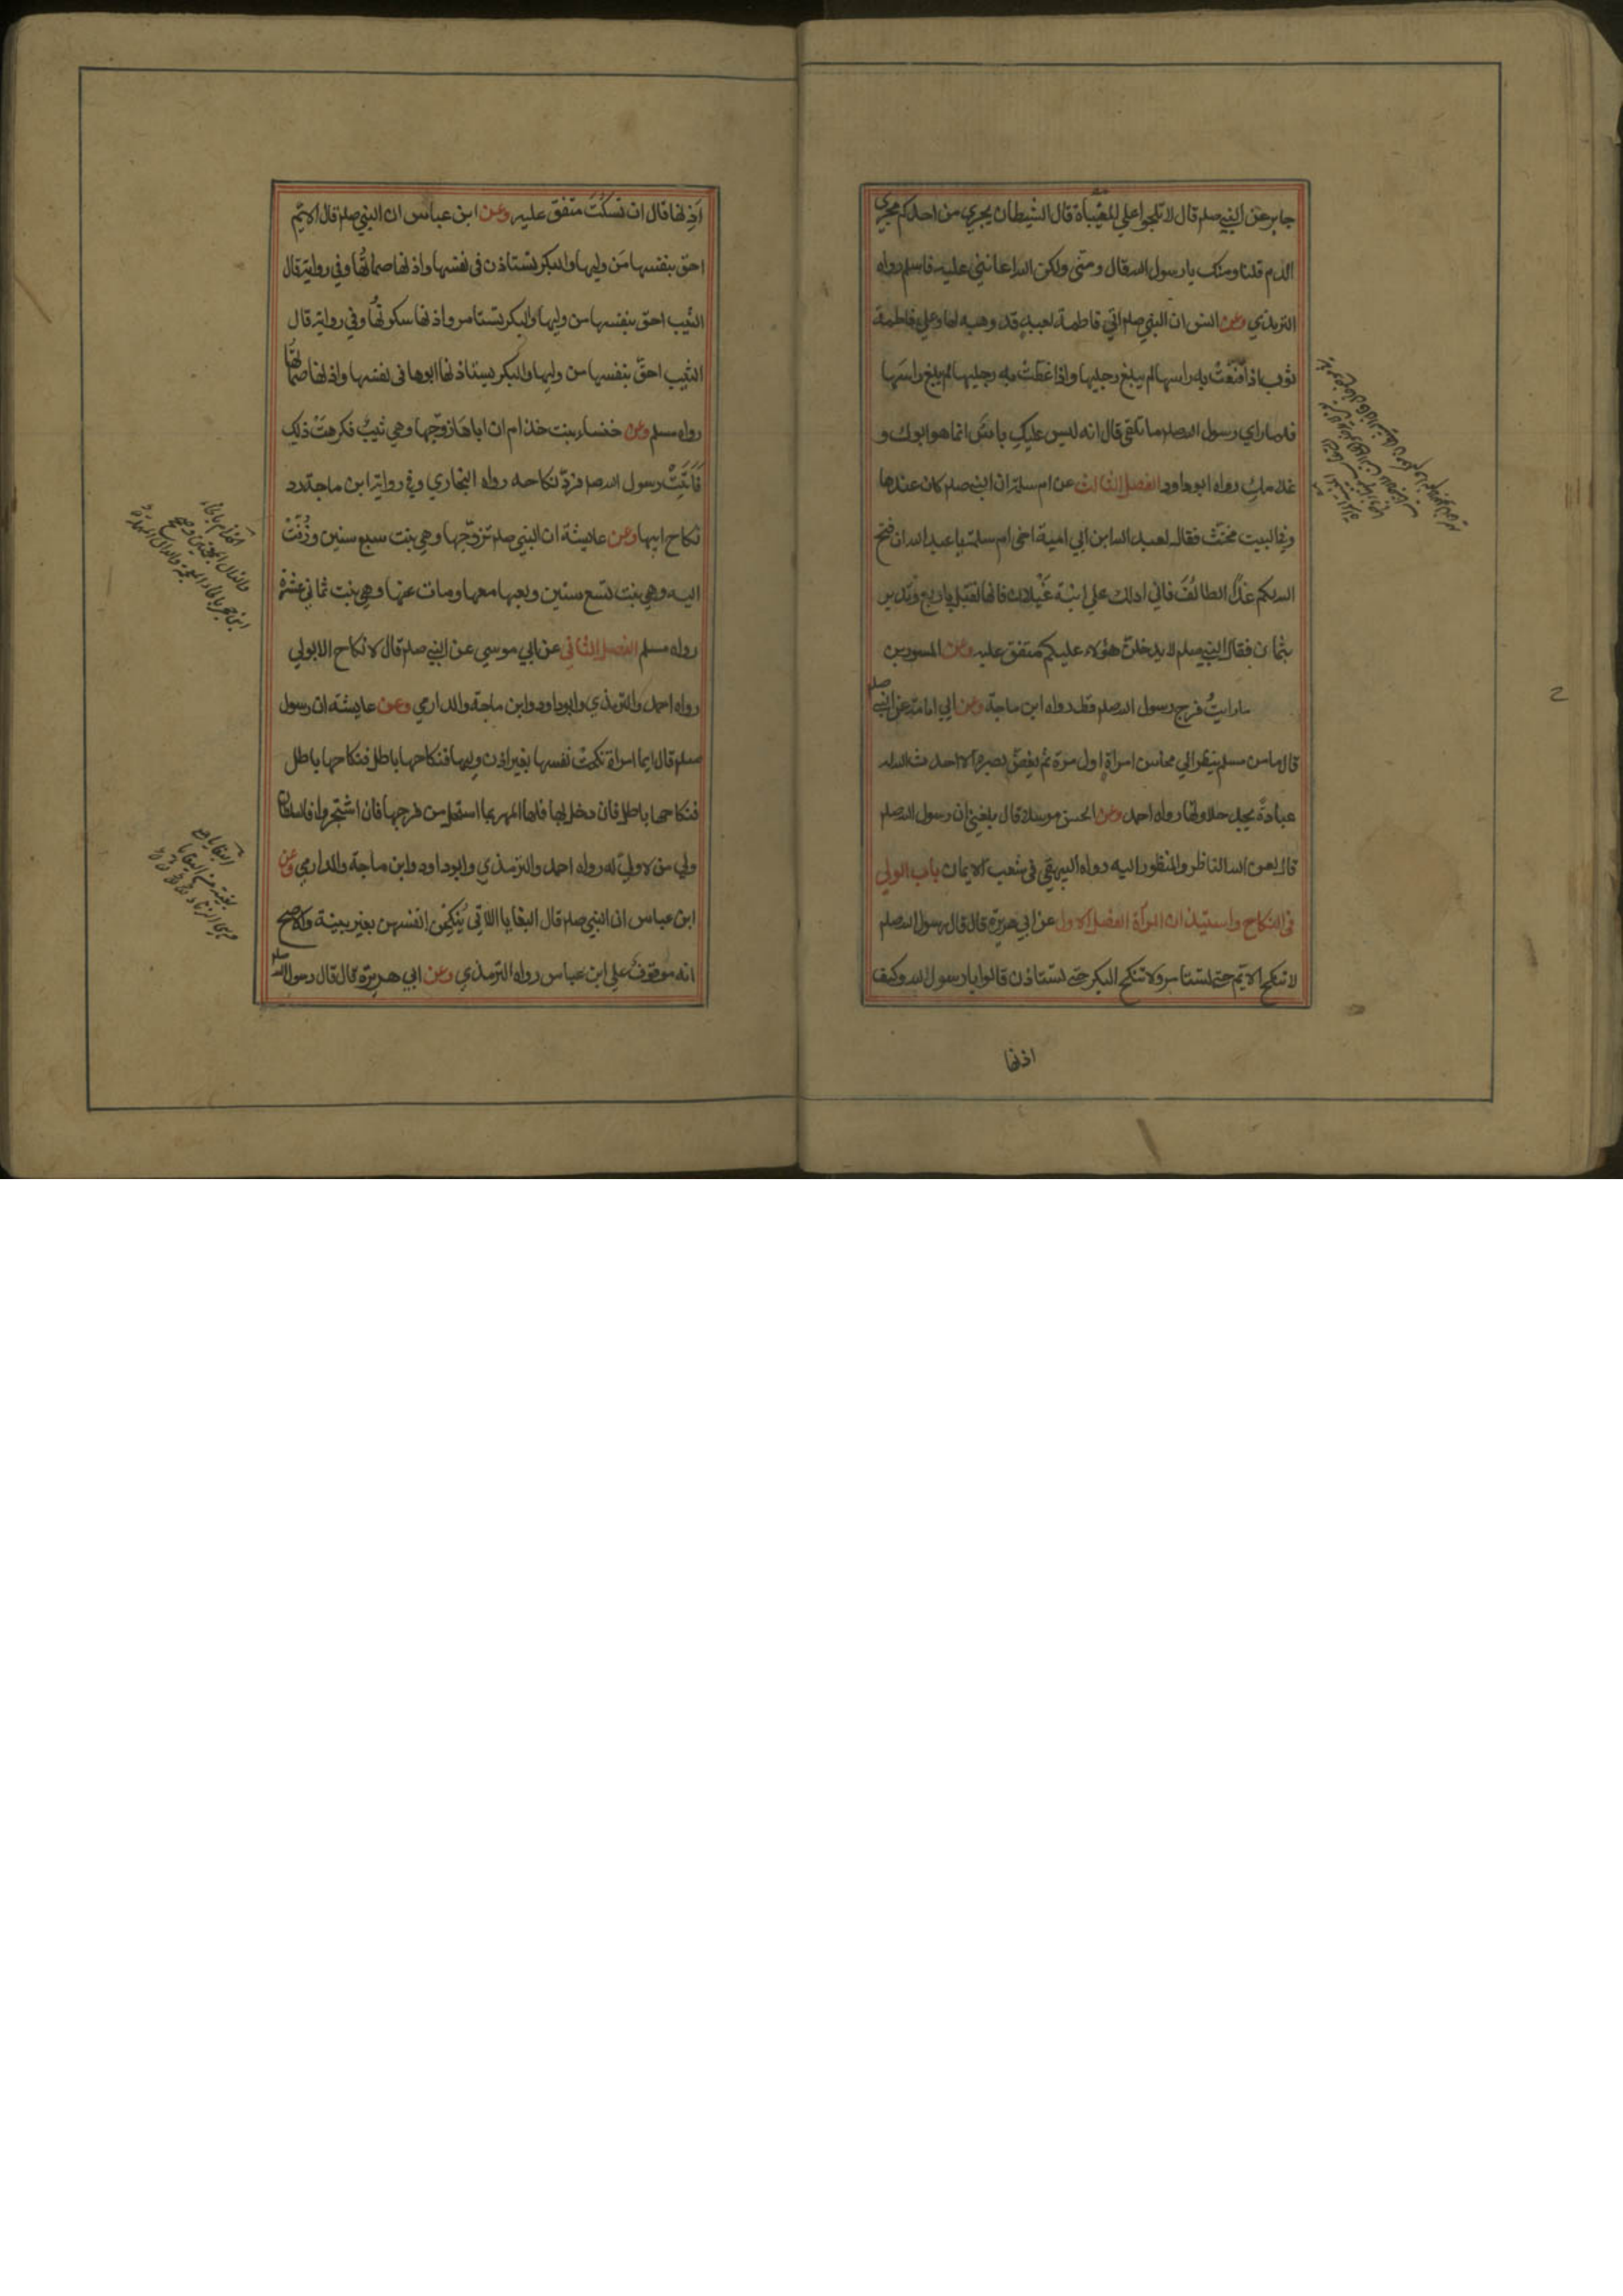 جابر عن النبي صلم قال لا تلجوا علي المغيبات فان الشيطان يجري من احدكم مجري
الدم قلنا ومنك يا رسول الله قال ومني ولكن الله اعانني عليه فاسلم رواه
الترمذي وعن انس ان النبي صلم اتي فاطمة بعبد قد وهبه لها وعلي فاطمة
ثوب اذا قنعت به راسها لم يبلغ رجليها واذا غطت به رجليها لم يبلغ راسها
فلما راي رسول الله صلم ما تلقي قال انه ليس عليك باس انما هو ابوك و
غلامك رواه ابوداود الفصل الثالث عن ام سلمة ان النبي صلم كان عندها
وفي البيت مخنث فقال لعبد الله ابن ابي امية اخي ام سلمة يا عبد الله ان فتح
الله لكم غدا الطائف فاني ادلك علي ابنة غيلان فانها تقبل باربع وتدبر
بثمان فقال النبي صلم لا يدخلن هؤلاء عليكم متفق عليه وعن المسور بن
ما رايت فرج رسول الله صلم قط رواه ابن ماجة وعن ابي امامة عن النبي صلم
قال ما من مسلم ينظر الي محاسن امراة اول مرة ثم يغض بصره الا احدث الله له
عبادة يجد حلاوتها رواه احمد وعن الحسن مرسلا قال بلغني ان رسول الله صلم
قال لعن الله الناظر والمنظور اليه رواه البيهقي في شعب الايمان باب الولي
في النكاح واستيذان المرأة الفصل الاول عن ابي هريرة قال قال رسول الله صلم
لا تنكح الايم حتي تستامر ولا تنكح البكر حتي تستاذن قالوا يا رسول الله وكيف
اذنها
اذنها قال ان تسكت متفق عليه وعن ابن عباس ان النبي صلم قال الايم
احق بنفسها من وليها والبكر تستاذن في نفسها واذنها صماتها وفي رواية قال
الثيب احق بنفسها من وليها والبكر تستامر واذنها سكوتها وفي رواية قال
الثيب احق بنفسها من وليها والبكر يستاذنها ابوها في نفسها واذنها صماتها
رواه مسلم وعن خنساء بنت خذام ان اباها زوجها وهي ثيب فكرهت ذلك
فاتت رسول الله صلم فرد نكاحه رواه البخاري وفي رواية ابن ماجة رد
نكاح ابيها وعن عايشة ان النبي صلم تزوجها وهي بنت سبع سنين وزفت
اليه وهي بنت تسع سنين ولعبها معها ومات عنها وهي بنت ثماني عشرة
رواه مسلم الفصل الثاني عن ابي موسي عن النبي صلم قال لا نكاح الا بولي
رواه احمد والترمذي وابوداود وابن ماجة والدارمي وعن عايشة ان رسول
صلم قال ايما امراة نكحت نفسها بغير اذن وليها فنكاحها باطل فنكاحها باطل
فنكاحها باطل فان دخل بها فلها المهر بما استحل من فرجها فان اشتجروا فالسلطان
ولي من لا ولي له رواه احمد والترمذي وابوداود وابن ماجة والدارمي وعن
ابن عباس ان النبي صلم قال البغايا اللاتي ينكحن انفسهن بغير بينة والاصح
انه موقوف علي ابن عباس رواه الترمذي وعن ابي هريرة قال قال رسول الله صلم